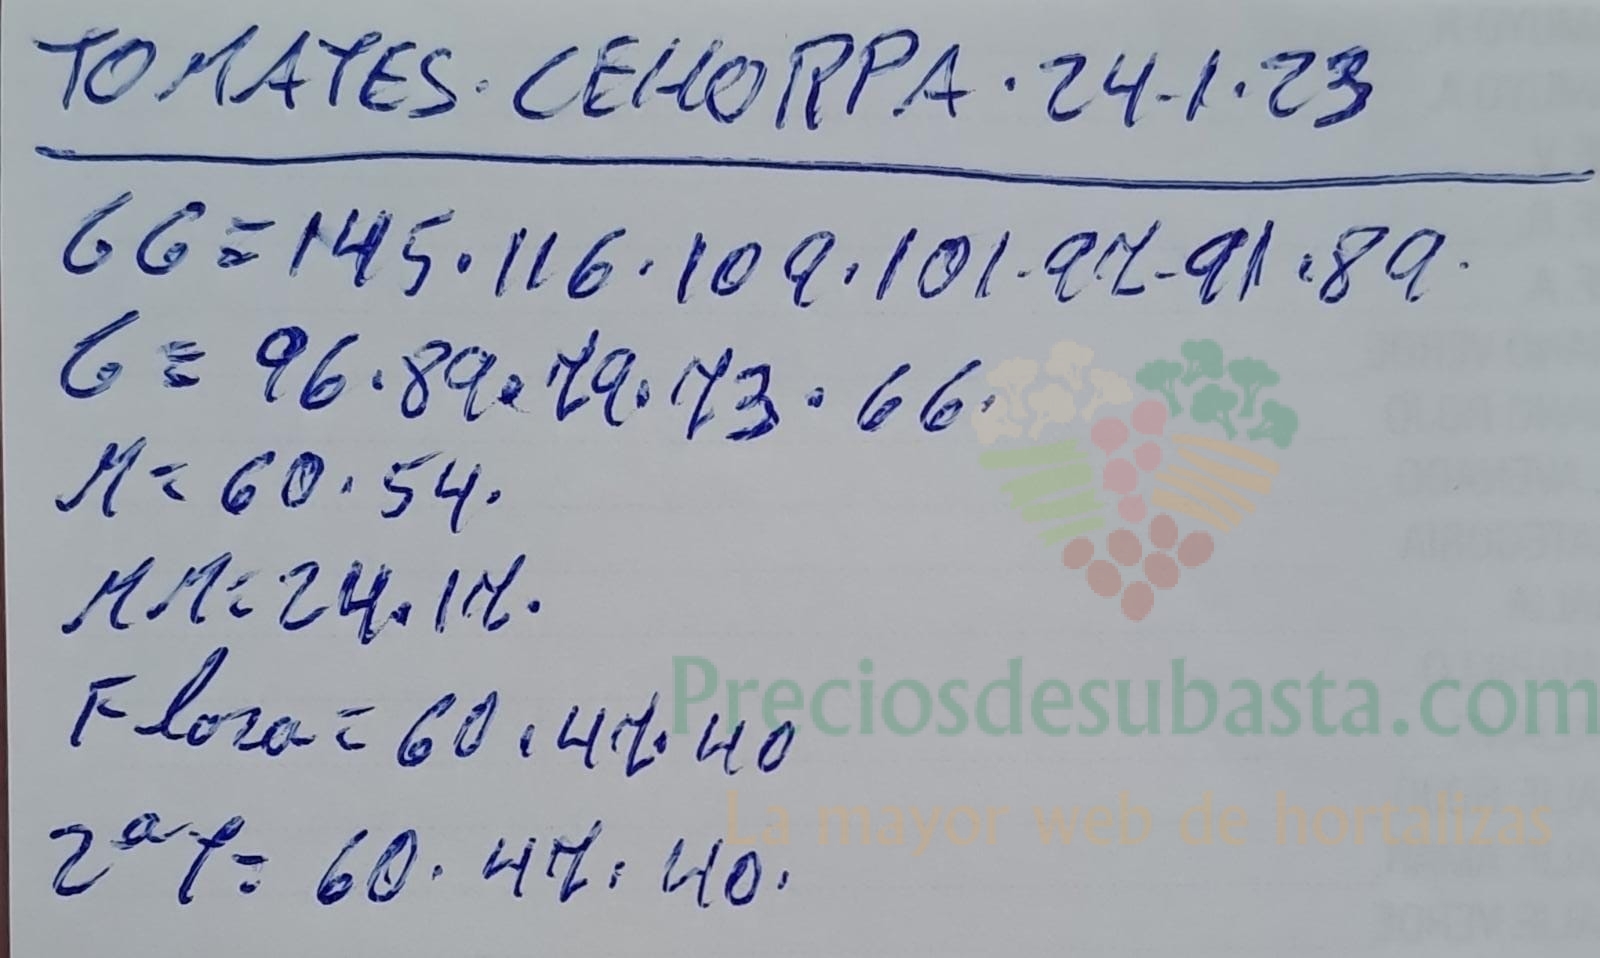 TOMATES. CEHORPA. 24-1.23
GG=145.116.109.101-97-91.89.
G= 96.89.79.73.66.
M= 60.54.
MM=24.17.
Floza= 60.47.40
2ª T= 60.47.40.
Preciosdesubasta.com
La mayor web de hortalizas